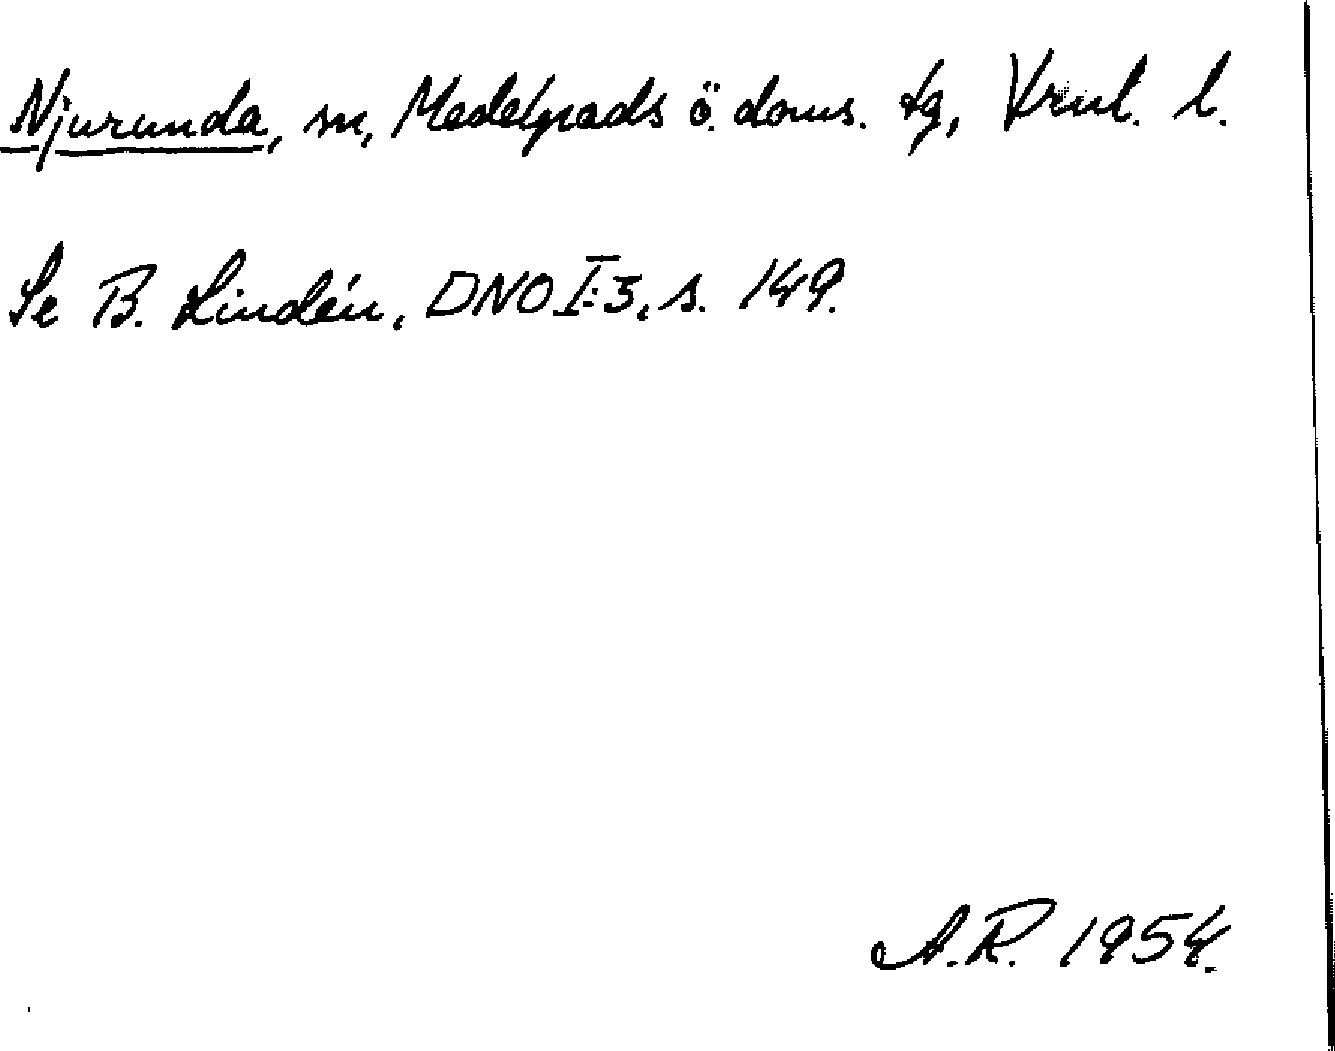 Njurunda, sn, Medelpads ö. doms. tg, Vrnl. l.
Se B. Lindén, DNO I:3, s. 149.
A.R. 1954.